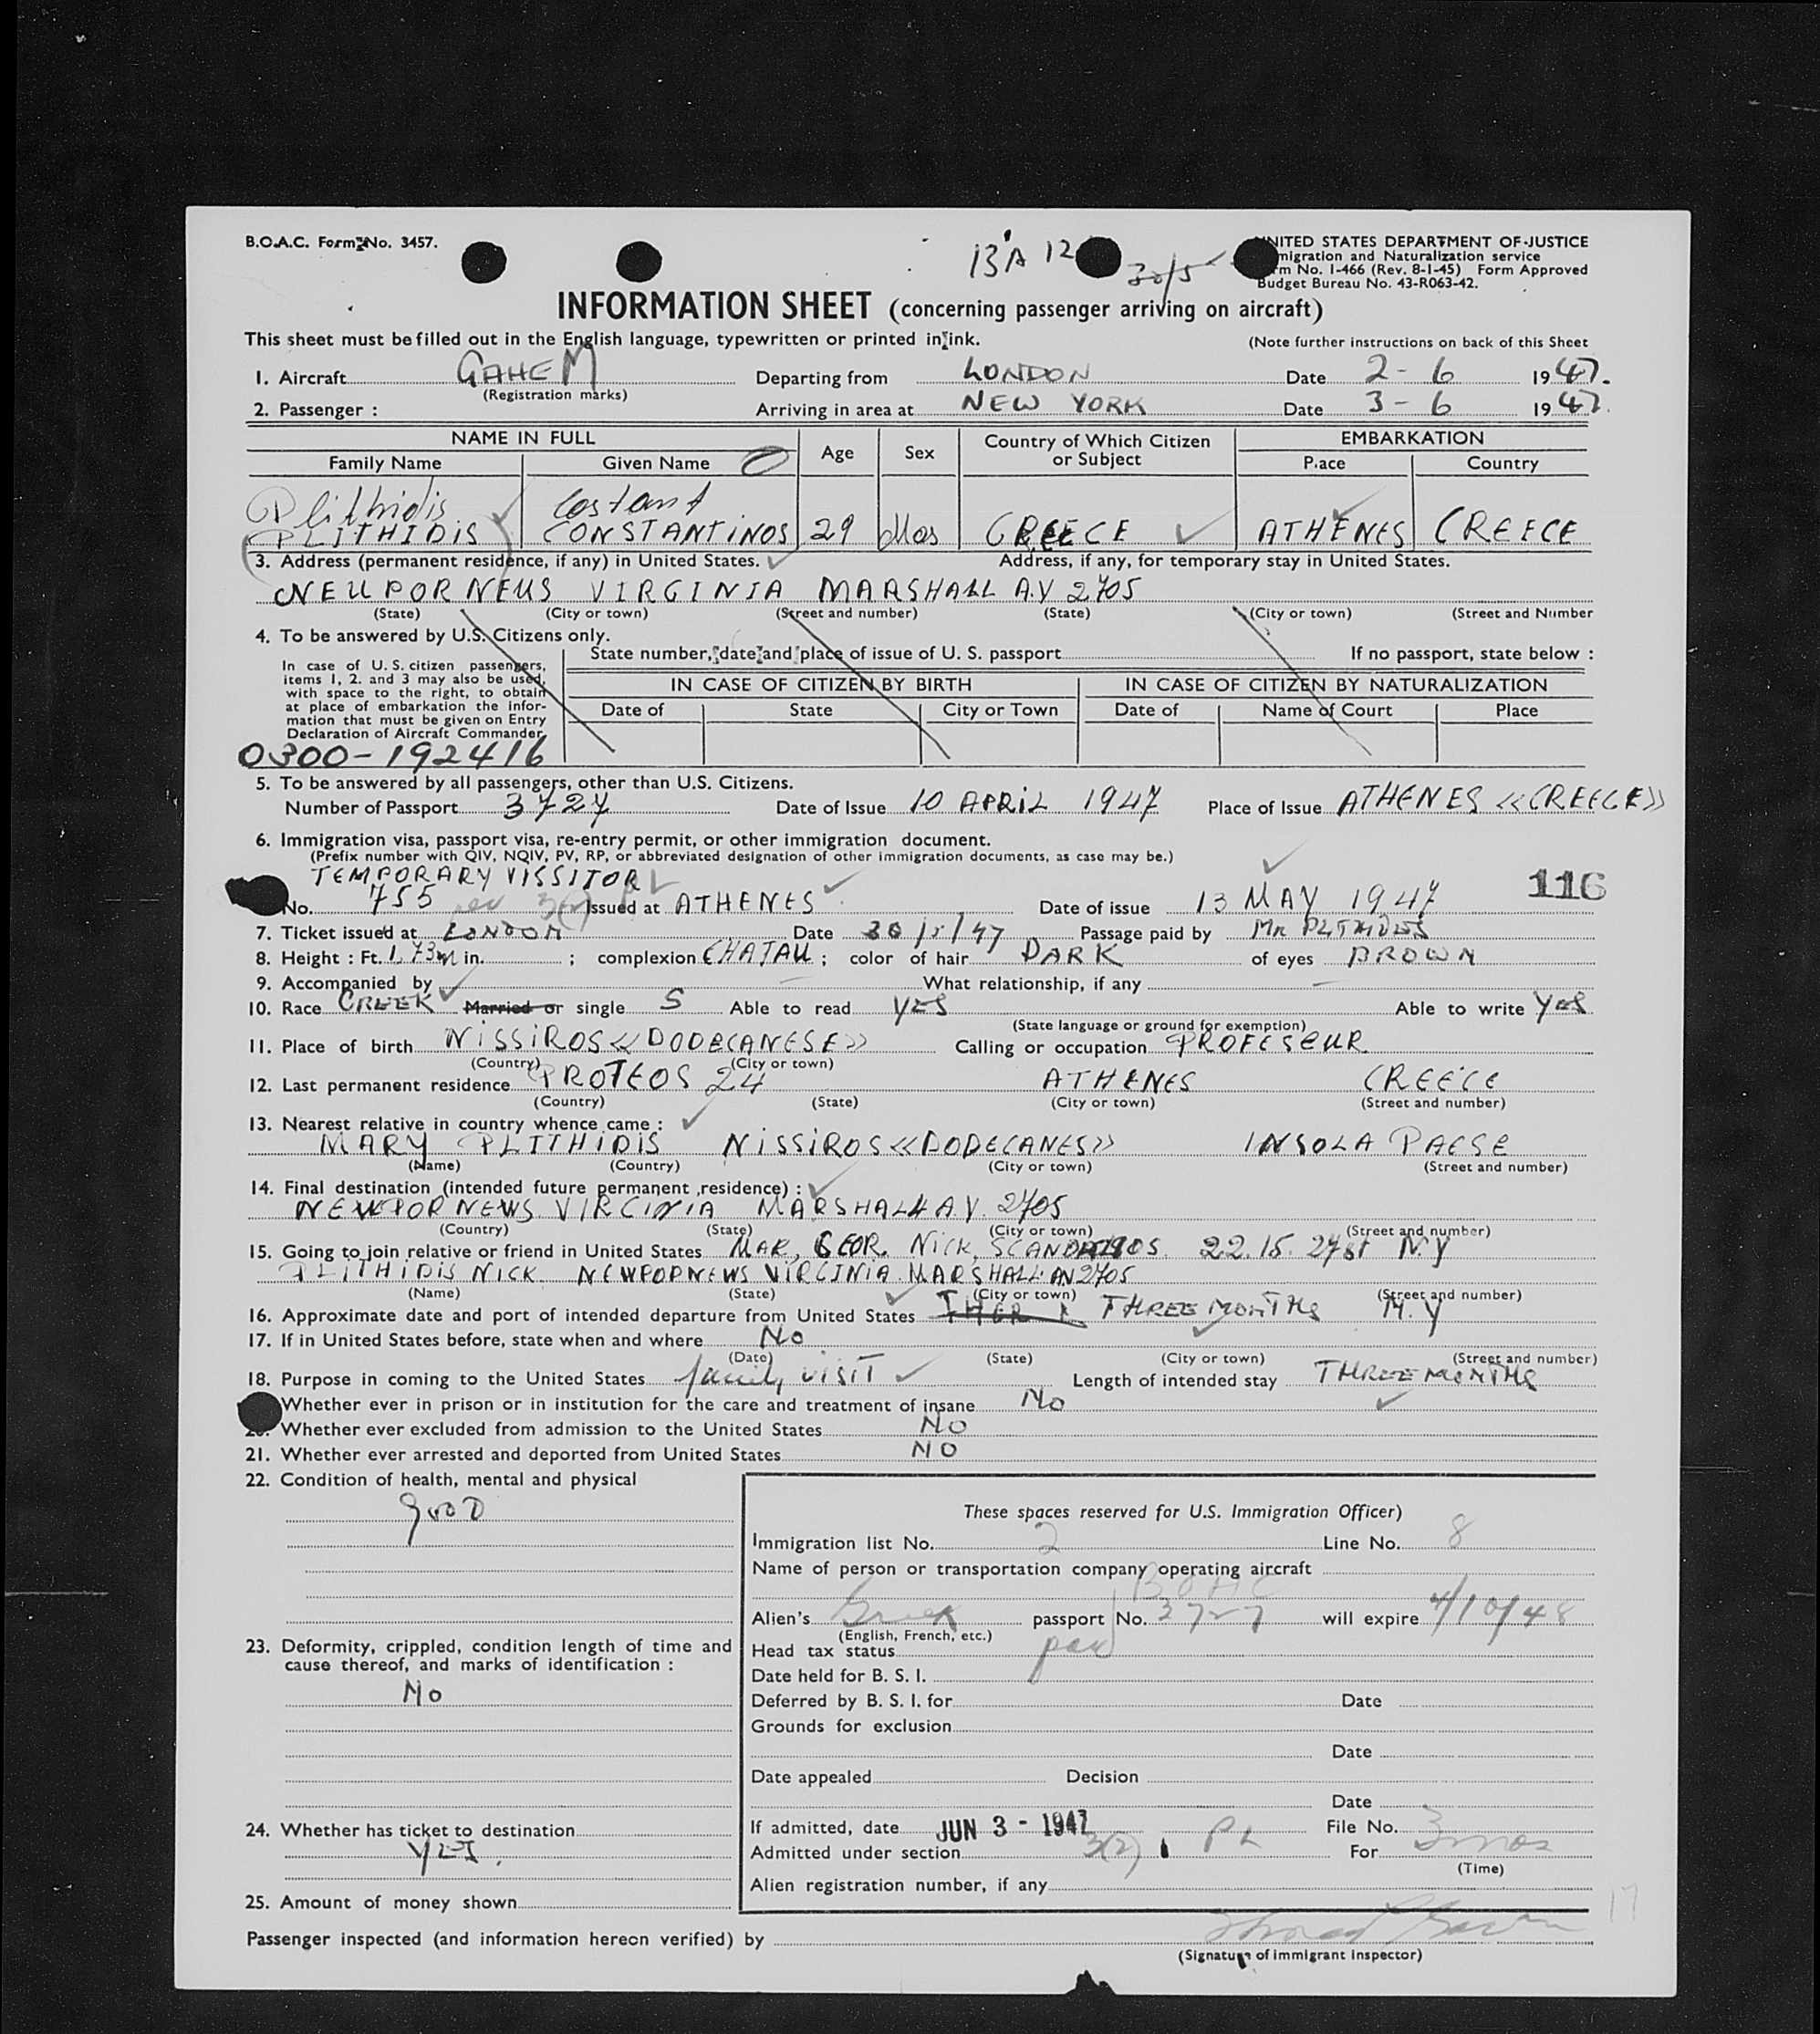 B.O.A.C. Form No. 3457.
13A 12
30/5
UNITED STATES DEPARTMENT OF JUSTICE
migration and Naturalization service
rm No. I-466 (Rev. 8-1-45) Form Approved
Budget Bureau No. 43-R063-42.
INFORMATION SHEET (concerning passenger arriving on aircraft)
This sheet must be filled out in the English language, typewritten or printed in ink. (Note further instructions on back of this Sheet
1. Aircraft GAHEM Departing from LONDON Date 2-6 1947.
(Registration marks)
2. Passenger : Arriving in area at NEW YORK Date 3-6 1947.
NAME IN FULL Age Sex Country of Which Citizen or Subject EMBARKATION
Family Name Given Name Place Country
Plithidis Costant
PLITHIDIS CONSTANTINOS 29 Mas GREECE ATHENES CREECE
3. Address (permanent residence, if any) in United States. Address, if any, for temporary stay in United States.
NEUPOR NEWS VIRGINIA MARSHALL A.V 2705
(State) (City or town) (Street and number) (State) (City or town) (Street and Number
4. To be answered by U.S. Citizens only.
State number, date and place of issue of U. S. passport If no passport, state below :
In case of U. S. citizen passengers,
items 1, 2. and 3 may also be used,
with space to the right, to obtain
at place of embarkation the infor-
mation that must be given on Entry
Declaration of Aircraft Commander.
IN CASE OF CITIZEN BY BIRTH IN CASE OF CITIZEN BY NATURALIZATION
Date of State City or Town Date of Name of Court Place
0300-192416
5. To be answered by all passengers, other than U.S. Citizens.
Number of Passport 3727 Date of Issue 10 APRIL 1947 Place of Issue ATHENES «CREECE»
6. Immigration visa, passport visa, re-entry permit, or other immigration document.
(Prefix number with QIV, NQIV, PV, RP, or abbreviated designation of other immigration documents, as case may be.)
TEMPORARY VISSITOR
116
No. 755 3(2) Issued at ATHENES Date of issue 13 MAY 1947
7. Ticket issued at LONDON Date 30/5/47 Passage paid by Mr PLITHIDIS
8. Height : Ft. 1,73m in. ; complexion CHATAU ; color of hair DARK of eyes BROWN
9. Accompanied by What relationship, if any
10. Race CREEK Married or single S Able to read YES Able to write YES
(State language or ground for exemption)
11. Place of birth NISSIROS «DODECANESE» Calling or occupation PROFESEUR
(Country) (City or town)
12. Last permanent residence PROTEOS 24 ATHENES CREECE
(Country) (State) (City or town) (Street and number)
13. Nearest relative in country whence came :
MARY PLITHIDIS NISSIROS «DODECANES» INSOLA PAESE
(Name) (Country) (City or town) (Street and number)
14. Final destination (intended future permanent residence) :
NEWPOR NEWS VIRCINIA MARSHALL A.V. 2705
(Country) (State) (City or town) (Street and number)
15. Going to join relative or friend in United States MAR, GEOR. NICK. 22.15. 27st NY
PLITHIDIS NICK NEWPORNEWS VIRCINIA MARSHALL AV 2705
(Name) (State) (City or town) (Street and number)
16. Approximate date and port of intended departure from United States THREE MONTHS N.Y
17. If in United States before, state when and where No
(Date) (State) (City or town) (Street and number)
18. Purpose in coming to the United States family VISIT Length of intended stay THREE MONTHS
Whether ever in prison or in institution for the care and treatment of insane No
20. Whether ever excluded from admission to the United States No
21. Whether ever arrested and deported from United States NO
22. Condition of health, mental and physical
GOOD
23. Deformity, crippled, condition length of time and
cause thereof, and marks of identification :
No
24. Whether has ticket to destination
YES.
25. Amount of money shown
These spaces reserved for U.S. Immigration Officer)
Immigration list No. 2 Line No. 8
Name of person or transportation company operating aircraft
BOAC
Alien's Greek passport No. 3727 will expire 4/10/48
(English, French, etc.)
Head tax status paid
Date held for B. S. I.
Deferred by B. S. I. for Date
Grounds for exclusion
Date
Date appealed Decision
Date
If admitted, date JUN 3 - 1947 File No.
Admitted under section 3(2) PL For 3 mos
(Time)
Alien registration number, if any
17
Passenger inspected (and information hereon verified) by
(Signature of immigrant inspector)